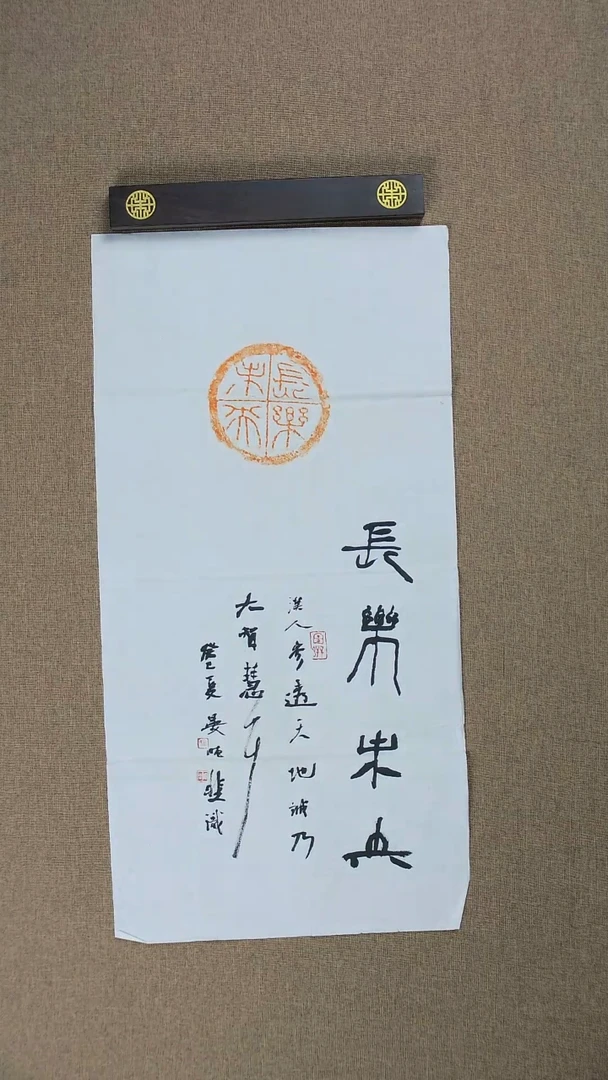 長樂未央
長樂未央
漢人參透天地誠乃
大智慧
癸巳夏晏
識